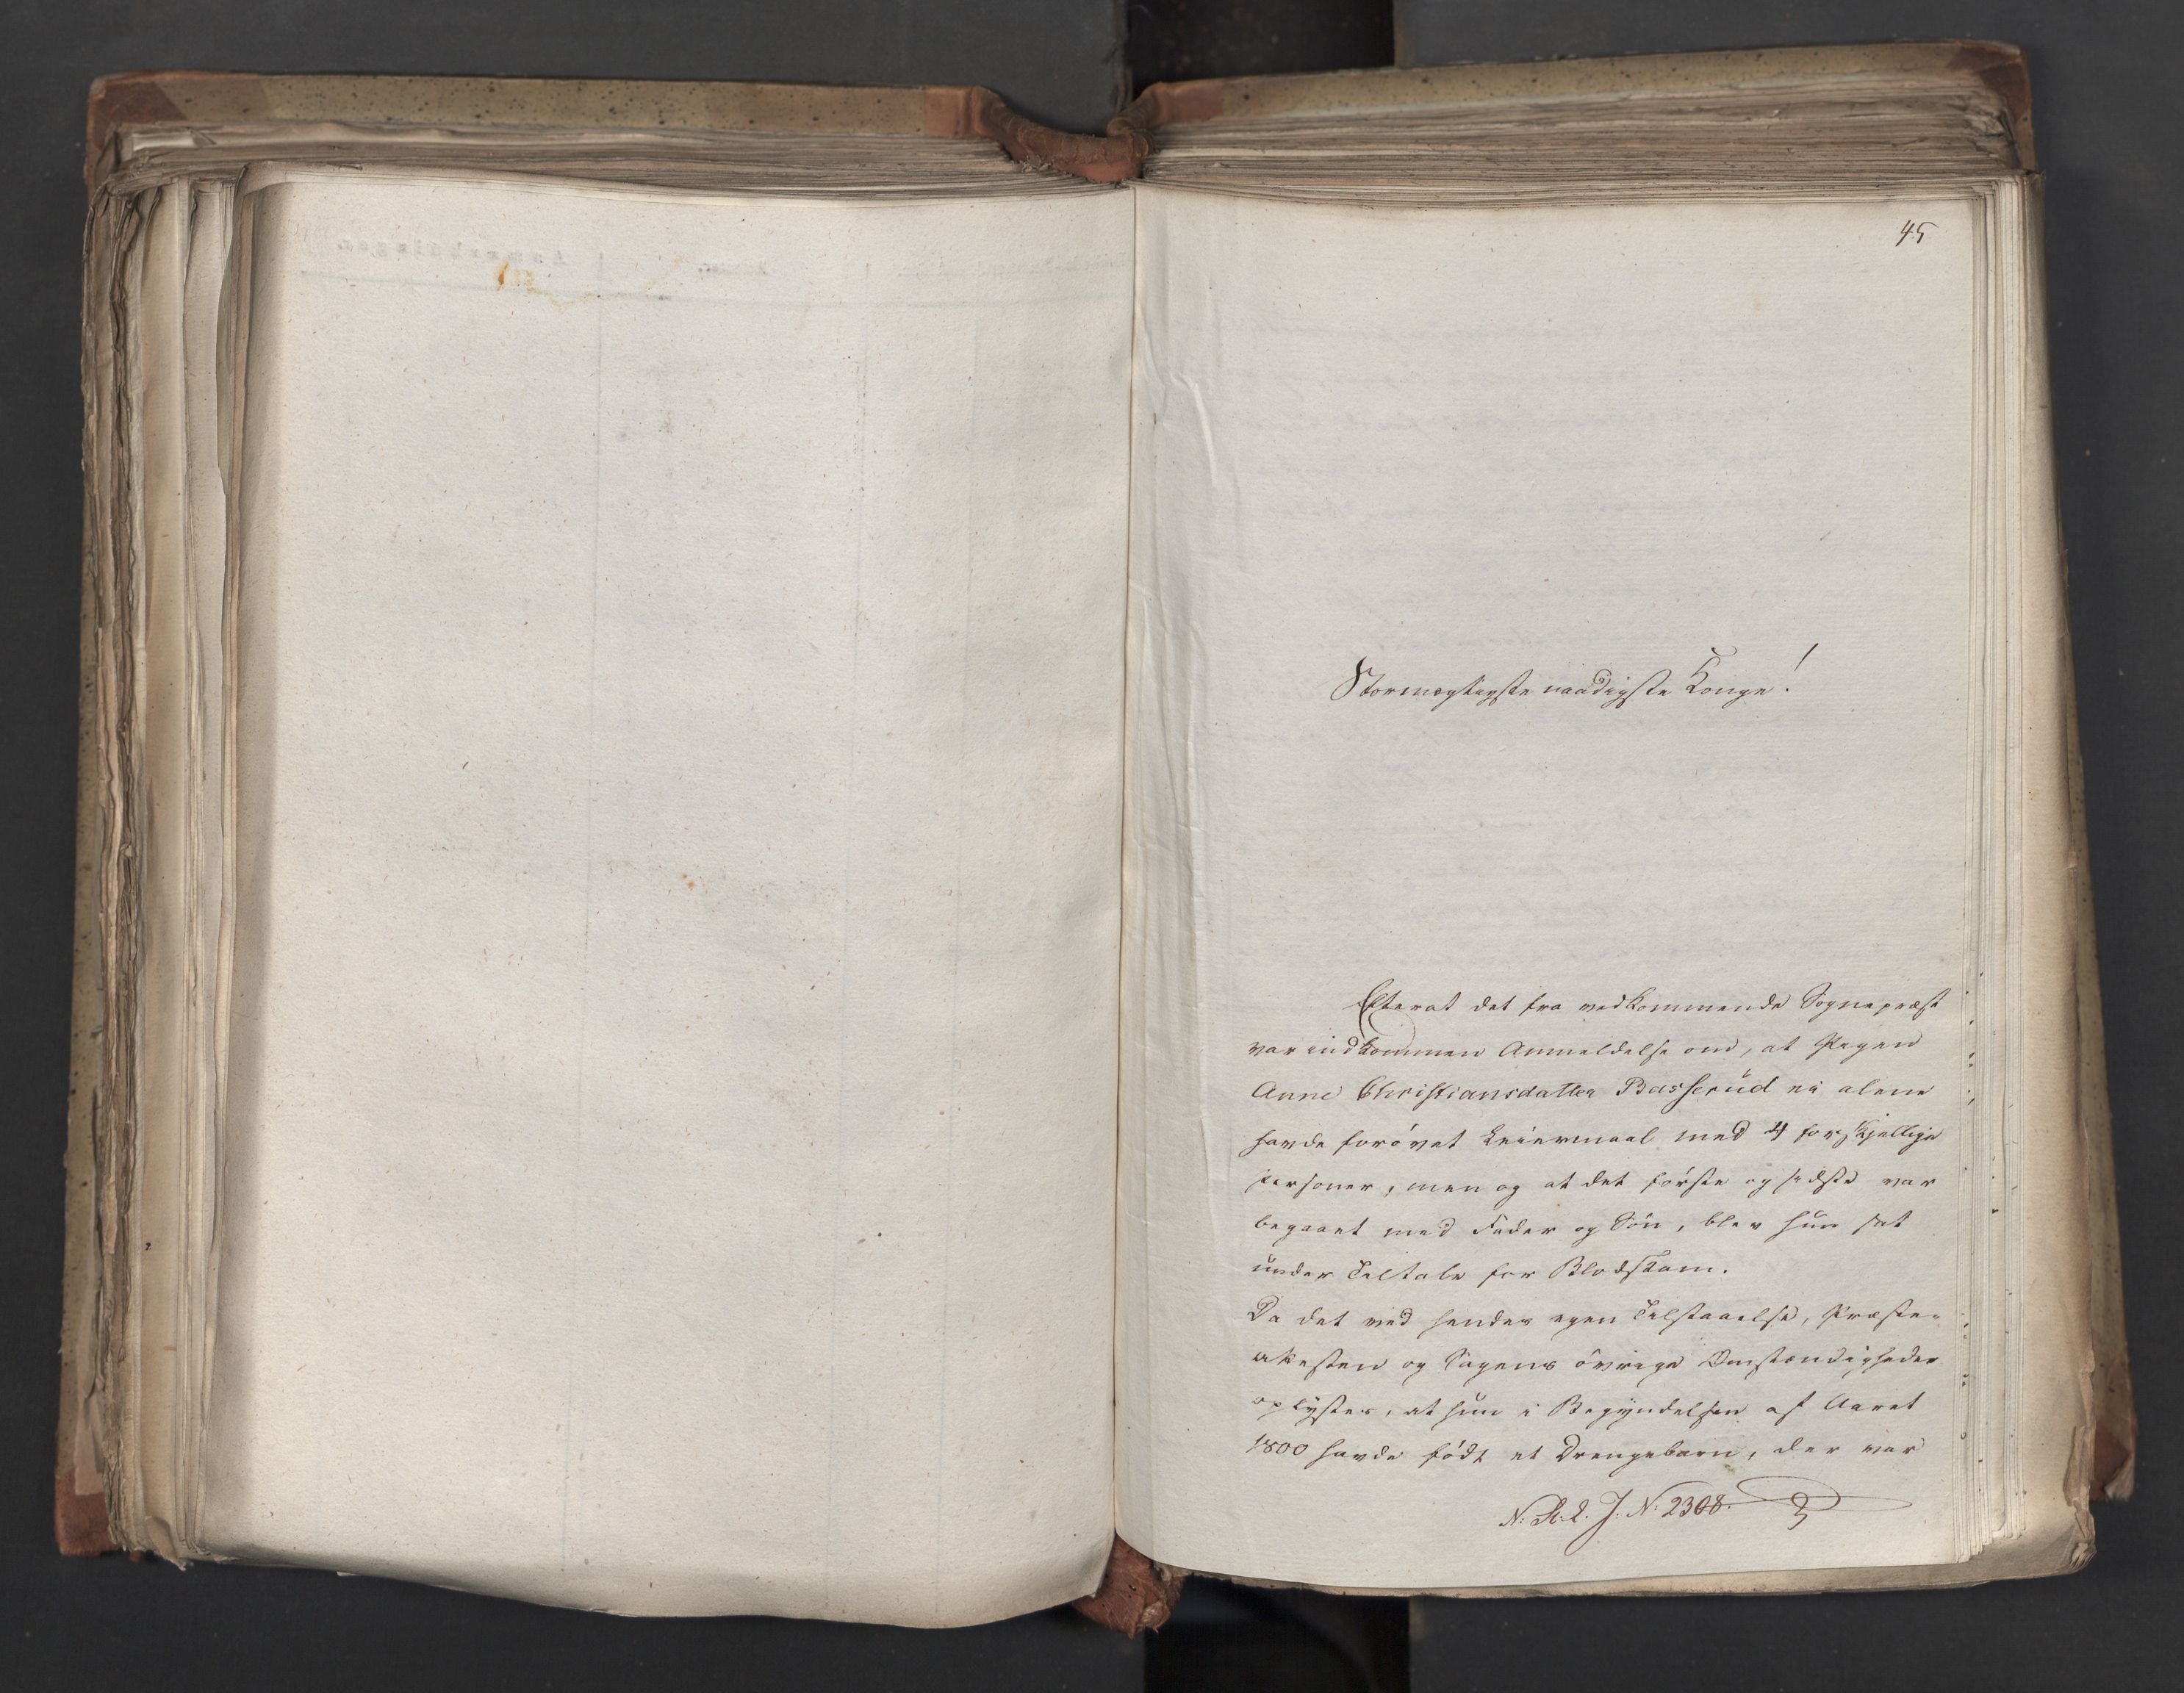 45
Stormægtigste naadigste Konge!
Efterat det fra vedkommende Sognepræst
var indkommen Anmeldelse om, at Pigen
Anne Christiansdatter Basserüd ei alene
havde forøvet Leiermaal med 4 forskjellige
Personer, men og at det første og sidste var
begaaet med Fader og Søn, blev hun sat
under Tiltale for Blodskam.
Da det ved hendes egen Tilstaaelse, Præste-
attesten og Sagens øvrige Omstændigheder
oplystes, at hun i Begyndelsen af Aaret
1800 havde født et Drengebarn, der var
J. N: 2308.